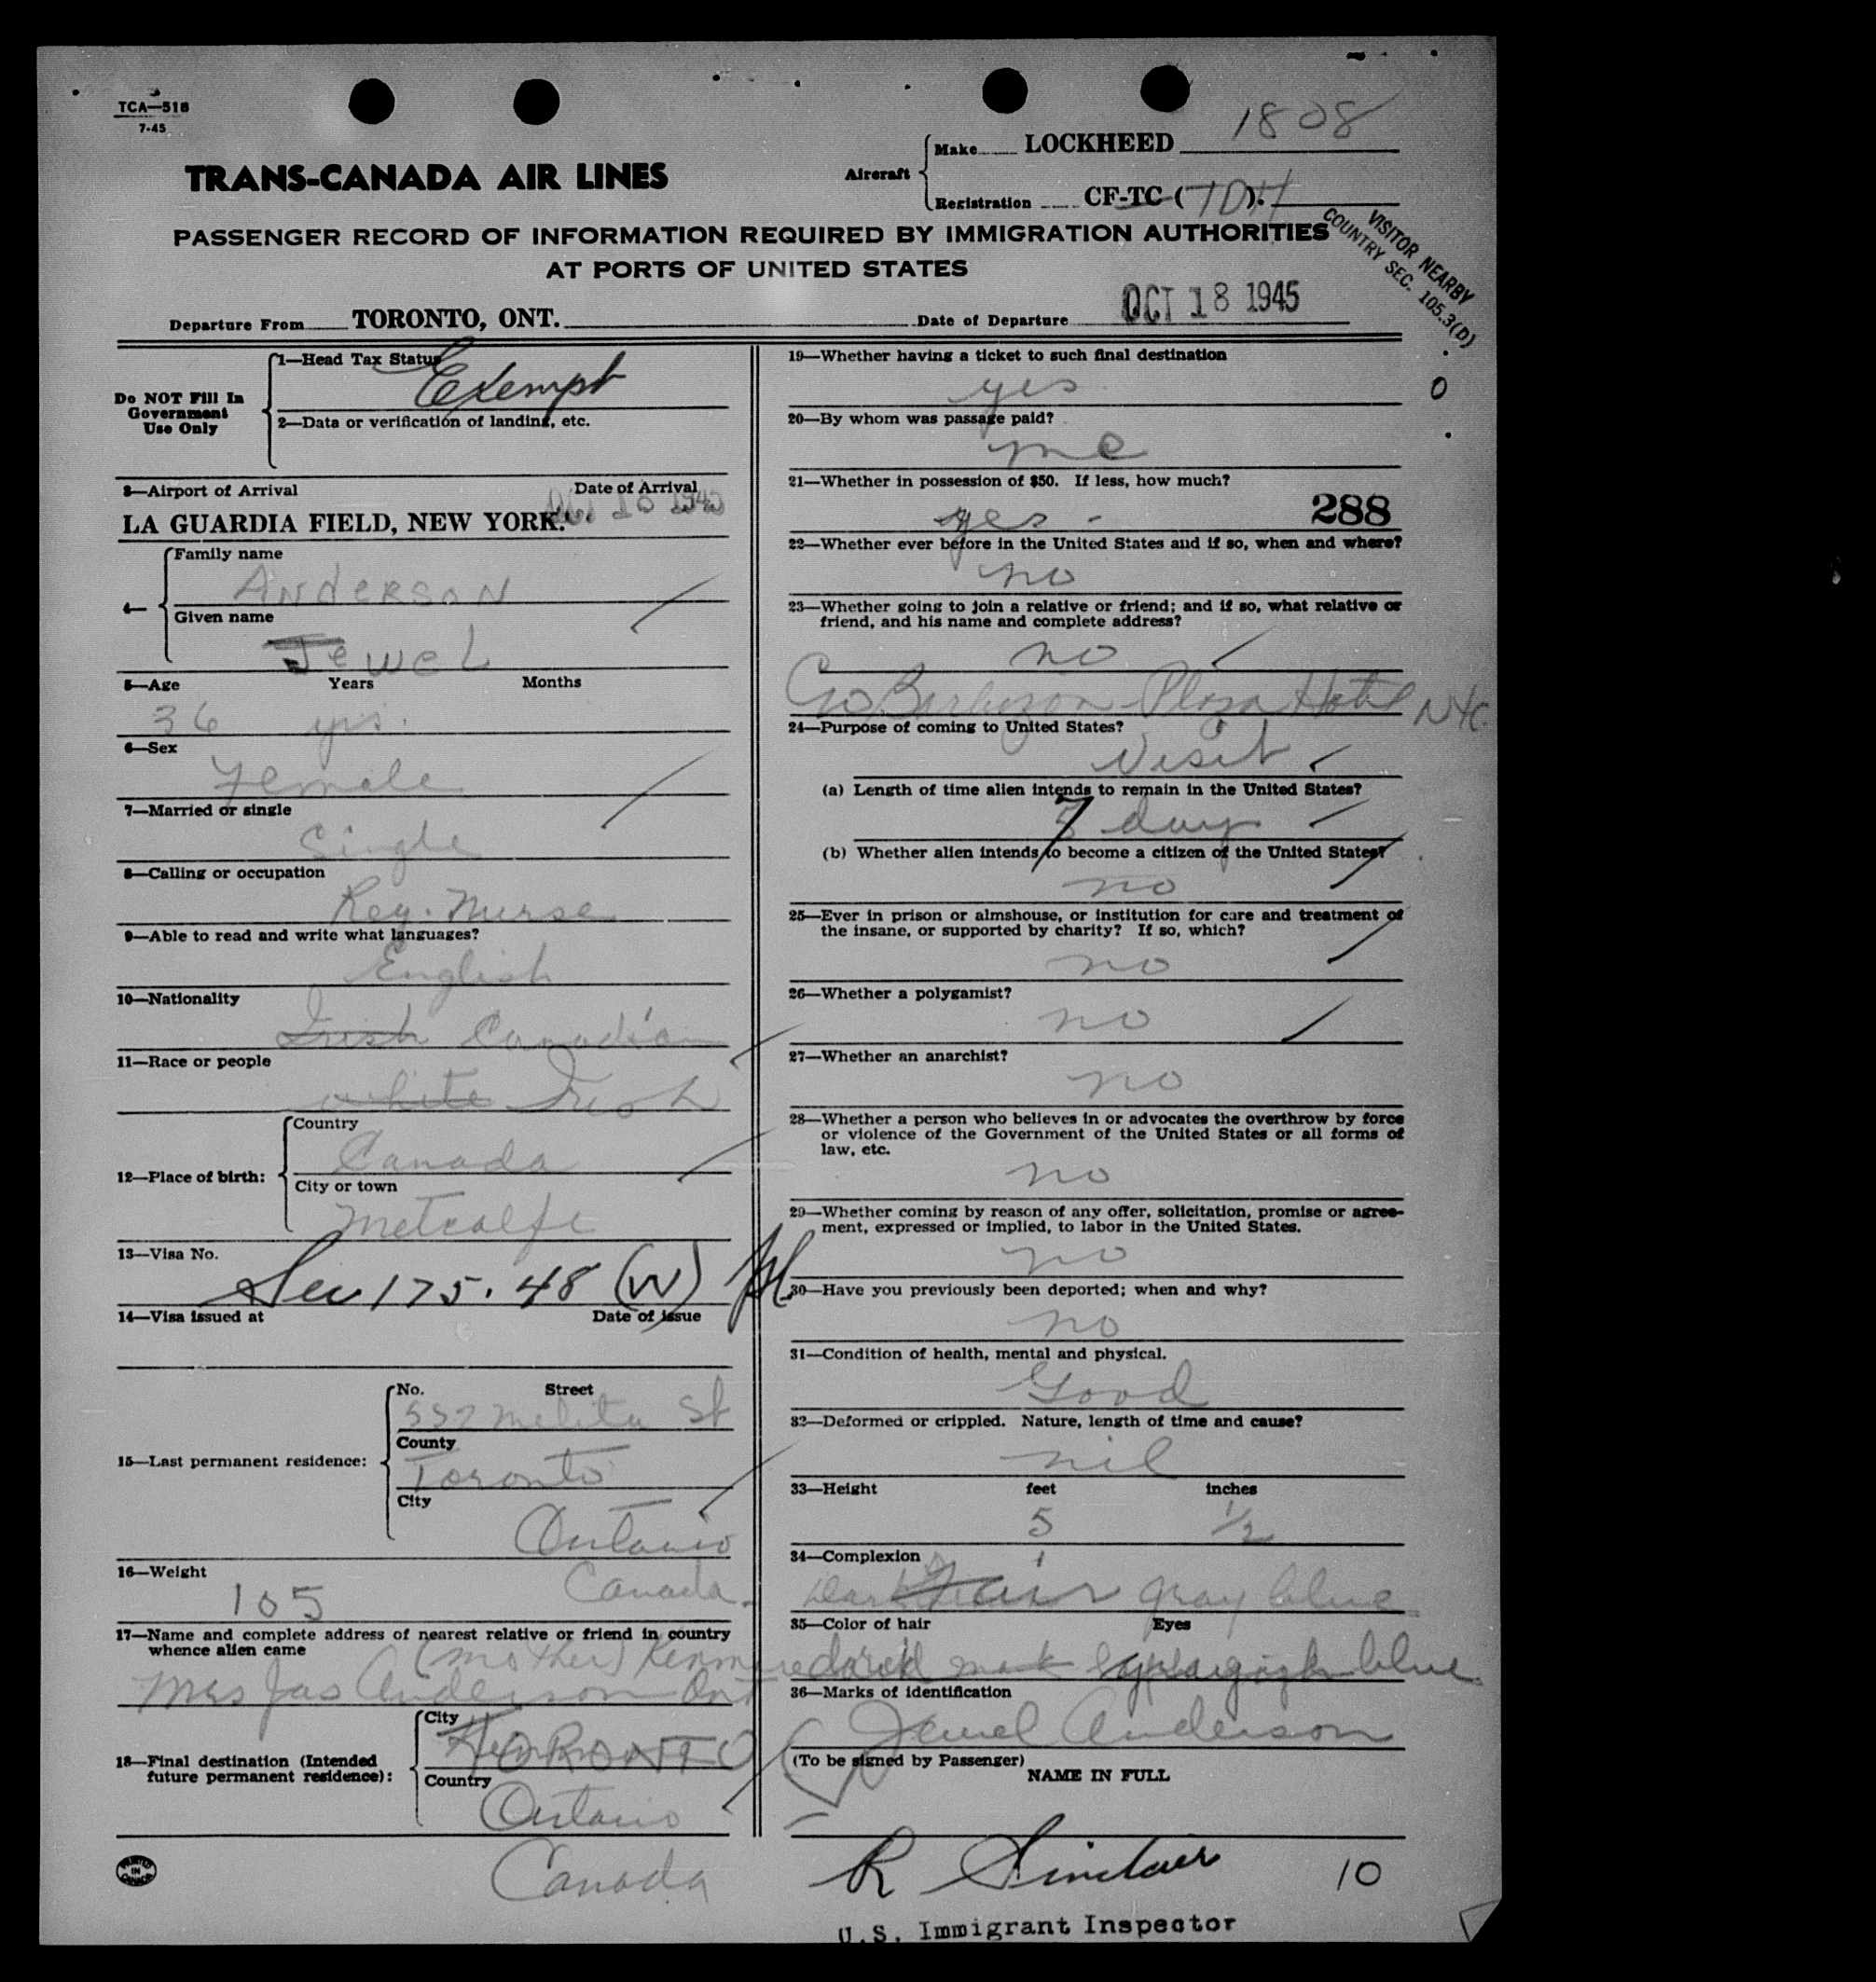 TCA—518
7-45
TRANS-CANADA AIR LINES
Aircraft
Make LOCKHEED 1808
Registration CF-TC ( TDH ).
PASSENGER RECORD OF INFORMATION REQUIRED BY IMMIGRATION AUTHORITIES
AT PORTS OF UNITED STATES
VISITOR NEARBY
COUNTRY SEC. 105.3(D)
Departure From TORONTO, ONT. Date of Departure OCT 18 1945
Do NOT Fill In
Government
Use Only
1—Head Tax Status
Exempt
2—Data or verification of landing, etc.
3—Airport of Arrival Date of Arrival
LA GUARDIA FIELD, NEW YORK.
4—
Family name
Anderson
Given name
Jewel
5—Age Years Months
36 yrs.
6—Sex
Female
7—Married or single
Single
8—Calling or occupation
Reg. Nurse
9—Able to read and write what languages?
English
10—Nationality
Irish Canadian
11—Race or people
white Irish
12—Place of birth:
Country
Canada
City or town
Metcalfe
13—Visa No.
Sec 175.48 (W)
14—Visa issued at Date of issue
15—Last permanent residence:
No. Street
St
County
Toronto
City
Ontario
Canada
16—Weight
105
17—Name and complete address of nearest relative or friend in country
whence alien came
(mother) Kenmore
Mrs Jas Anderson Ont
18—Final destination (Intended
future permanent residence):
City
TORONTO
Country
Ontario
Canada
PRINTED
IN
CANADA
19—Whether having a ticket to such final destination
yes
0
20—By whom was passage paid?
me
21—Whether in possession of $50. If less, how much?
yes - 288
22—Whether ever before in the United States and if so, when and where?
no
23—Whether going to join a relative or friend; and if so, what relative or
friend, and his name and complete address?
no
c/o Barbizon Plaza Hotel NYC
24—Purpose of coming to United States?
Visit
(a) Length of time alien intends to remain in the United States?
7 days
(b) Whether alien intends to become a citizen of the United States?
no
25—Ever in prison or almshouse, or institution for care and treatment of
the insane, or supported by charity? If so, which?
no
26—Whether a polygamist?
no
27—Whether an anarchist?
no
28—Whether a person who believes in or advocates the overthrow by force
or violence of the Government of the United States or all forms of
law, etc.
no
29—Whether coming by reason of any offer, solicitation, promise or agree-
ment, expressed or implied, to labor in the United States.
no
30—Have you previously been deported; when and why?
no
31—Condition of health, mental and physical.
Good
32—Deformed or crippled. Nature, length of time and cause?
nil
33—Height feet inches
5 1/2
34—Complexion
Dark Fair gray blue
35—Color of hair Eyes
dark blue
36—Marks of identification
Jewel Anderson
(To be signed by Passenger)
NAME IN FULL
R Sinclair 10
U.S. Immigrant Inspector